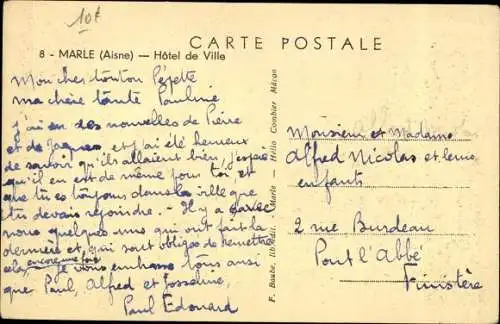 10f
CARTE POSTALE
8 - MARLE (Aisne) — Hôtel de Ville
Mon cher tonton Pépette
ma chère tante Pauline
J'ai eu des nouvelles de Pierre
et de Jacques et j'ai été heureux
de savoir qu'ils allaient bien, j'espère
qu'il en est de même pour toi et
que tu es toujours dans la ville que
tu devais rejoindre. - Il y a avec
nous quelques uns qui ont fait la
dernière et qui sont obligés de remettre
cela encore une fois. Je vous embrasse tous ainsi
que Paul, Alfred et Josseline,
Paul Edouard
F. Baube, Edit. Marle — Hélio Combier Mâcon
Monsieur et Madame
Alfred Nicolas et leurs
enfants
2 rue Burdeau
Pont l'Abbé
Finistère